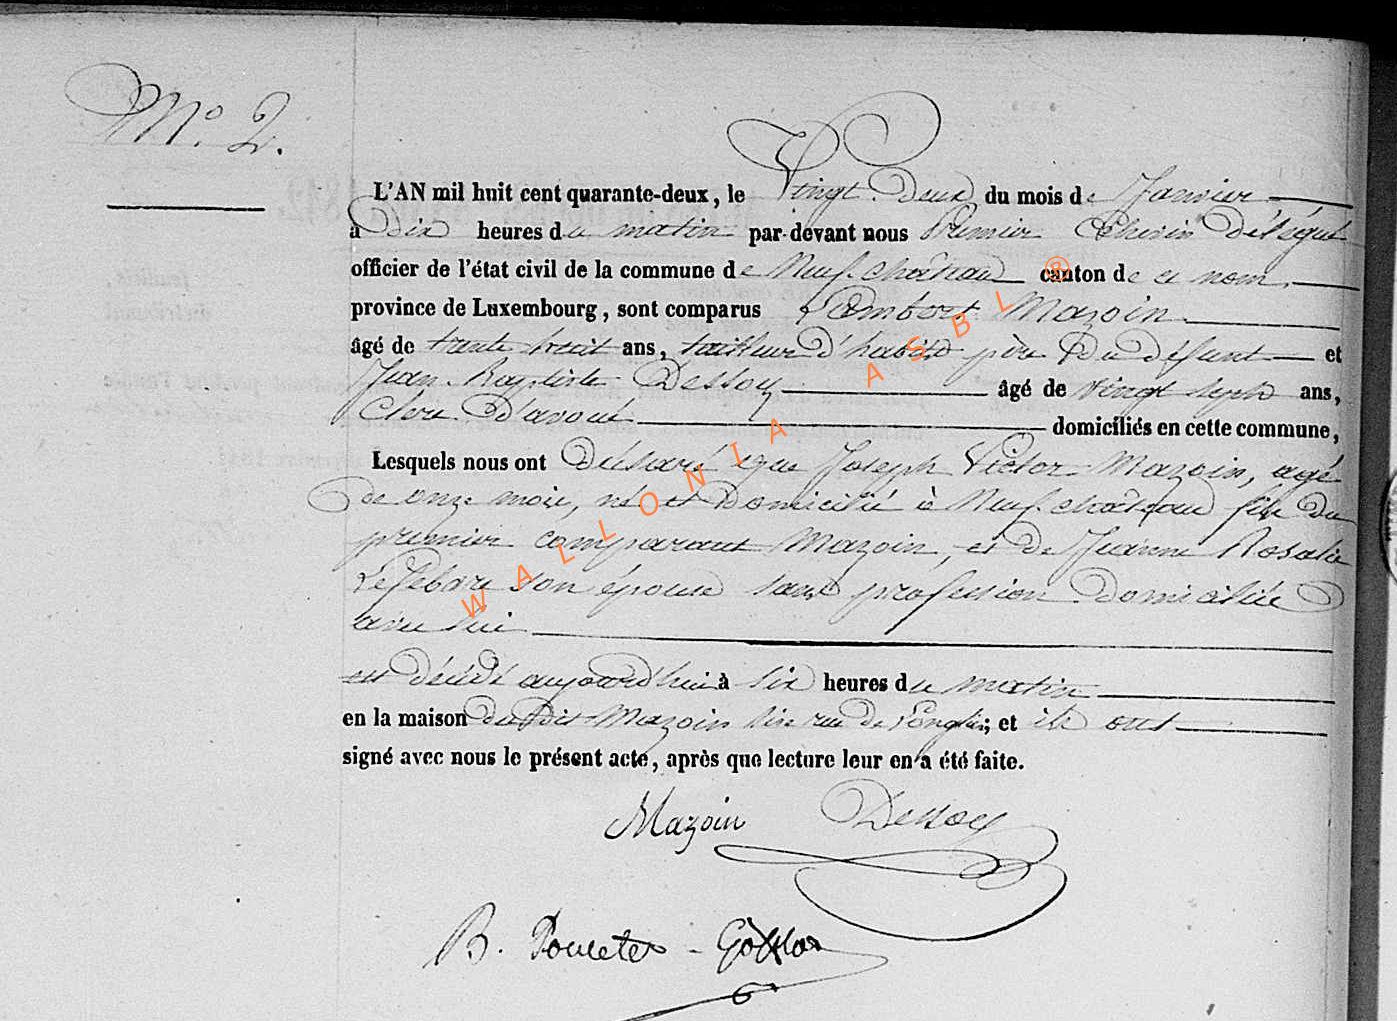 N° 2.
L'AN mil huit cent quarante-deux, le Vingt Deux du mois de Janvier
à Dix heures du matin par-devant nous Premier Echevin Délégué
officier de l'état civil de la commune de Neufchâteau canton de ce nom
province de Luxembourg, sont comparus Lambert Mazoin
âgé de trente huit ans, tailleur d'habits père Du défunt et
Jean Baptiste Dessoy âgé de vingt sept ans,
Clerc D'avoué domiciliés en cette commune,
Lesquels nous ont Déclaré que Joseph Victor Mazoin, agé
de onze mois, né et Domicilié à Neufchâteau fils du
premier comparant Mazoin, et de Jeanne Rosalie
Lefebvre son épouse sans profession Domiciliée
avec lui
est décédé aujourd'hui à six heures du matin
en la maison du dit Mazoin sise rue de l'Eglise; et ils ont
signé avec nous le présent acte, après que lecture leur en a été faite.
Mazoin Dessoy
B. Poncelet -
WALLONIA ASBL ®